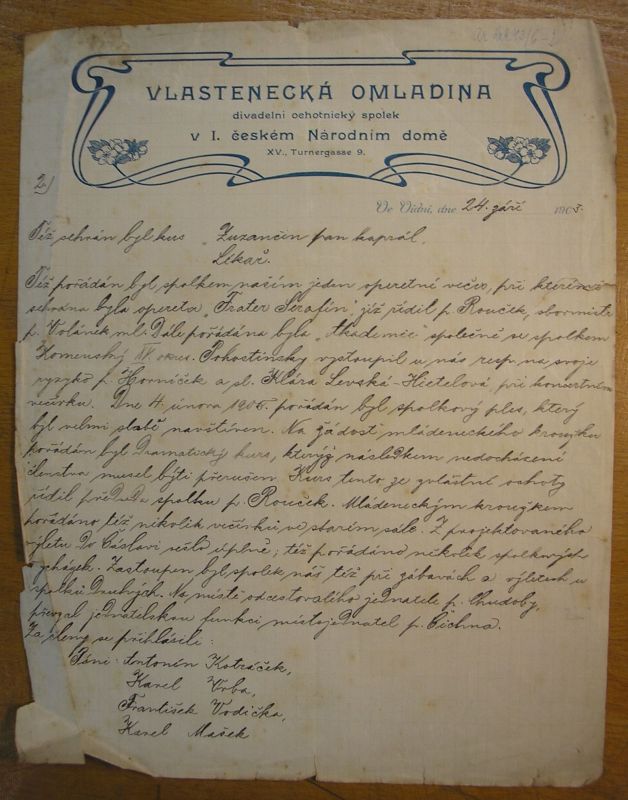 VLASTENECKÁ OMLADINA
divadelní ochotnický spolek
v I. českém Národním domě
XV., Turnergasse 9.
2)
Ve Vídni, dne 24. září 1905.
Též sehrán byl kus „Zuzančin pan kaprál,
Lékař.
Též pořádán byl spolkem naším jeden operetní večer, při kterém
sehrána byla opereta „Frater Serafin" již řídil p. Rouček, sbormistr
p. Volánek ml. Dále pořádána byla „Akademie" společně se spolkem
Komenský okres. Pohostinsky vystoupil u nás resp. na svoje
p. Horníček a sl. Klára Levská-Hietelová při koncertním
večírku. Dne 4. února 1905. pořádán byl spolkový ples, který
byl velmi slabě navštíven. Na žádost mládeneckého kroužku
pořádán byl Dramatický kurs, který následkem nedocházení
členstva musel býti přerušen. Kurs tento ze zvláštní ochoty
řídil předseda spolku p. Rouček. Mládeneckým kroužkem
pořádáno též několik večírků ve starém sále. Z projektovaného
výletu do Čáslavi sešlo úplně; též pořádáno několik spolkových
vycházek. Zastoupen byl spolek náš též při zábavách a výletech u
spolků druhých. Na místě odcestovalého jednatele p. Chudoby,
převzal jednatelskou funkci místojednatel p. Čichna.
Za členy se přihlásili:
Páni: Antonín Kotráček,
Karel Vrba,
František Vodička,
Karel Mašek